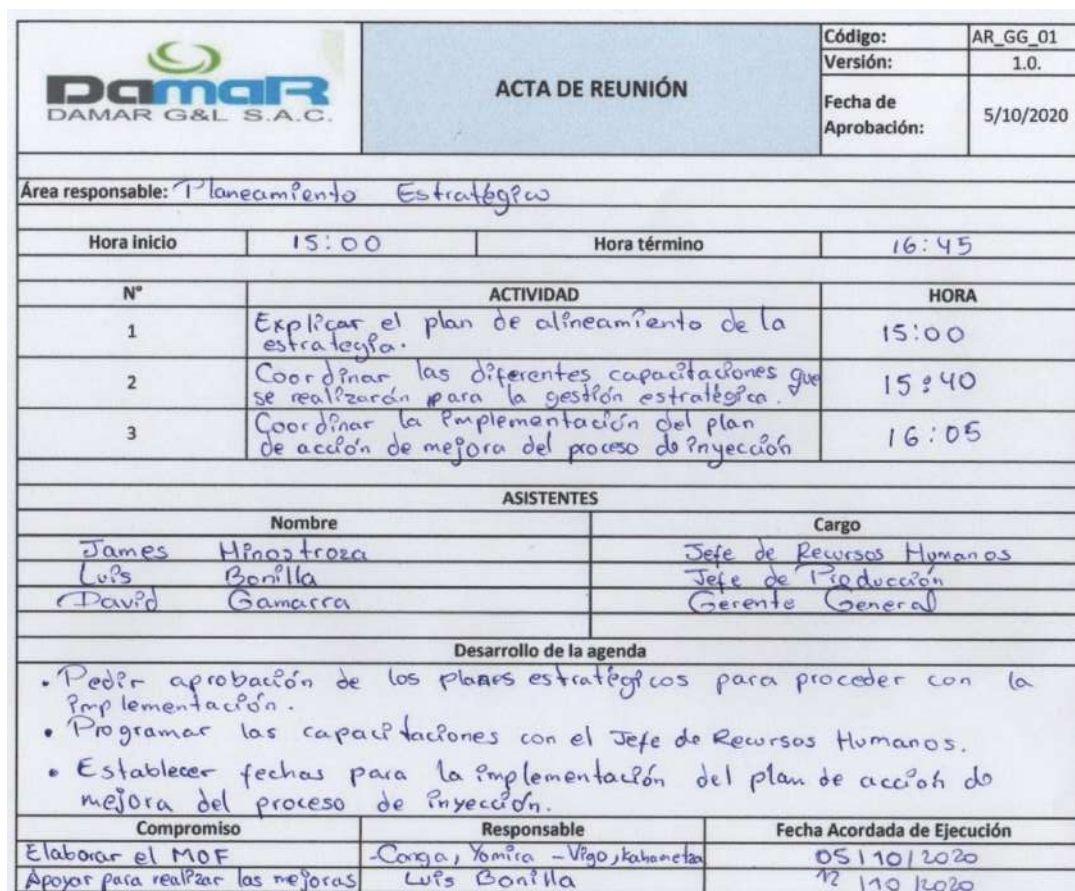 DamaR
DAMAR G&L S.A.C.
ACTA DE REUNIÓN
Código: AR_GG_01
Versión: 1.0.
Fecha de Aprobación: 5/10/2020
Área responsable: Planeamiento Estratégico
Hora inicio 15:00 Hora término 16:45
N° ACTIVIDAD HORA
1 Explicar el plan de alineamiento de la
estrategia. 15:00
2 Coordinar las diferentes capacitaciones que
se realizarán para la gestión estratégica. 15:40
3 Coordinar la implementación del plan
de acción de mejora del proceso de inyección 16:05
ASISTENTES
Nombre Cargo
James Hinostroza Jefe de Recursos Humanos
Luis Bonilla Jefe de Producción
David Gamarra Gerente General
Desarrollo de la agenda
• Pedir aprobación de los planes estratégicos para proceder con la
implementación.
• Programar las capacitaciones con el Jefe de Recursos Humanos.
• Establecer fechas para la implementación del plan de acción de
mejora del proceso de inyección.
Compromiso Responsable Fecha Acordada de Ejecución
Elaborar el MOF - Yomira - Vigo, 05/10/2020
Apoyar para realizar las mejoras Luis Bonilla 12/10/2020